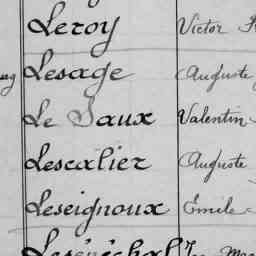 Leroy Victor
Lesage Auguste
Le Saux Valentin
Lescalier Auguste
Leseignoux Émile
Lesénéchal